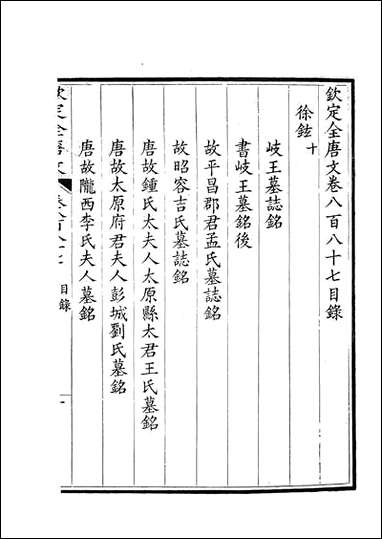 欽定全唐文卷八百八十七目錄
徐鉉十
岐王墓誌銘
書岐王墓銘後
故平昌郡君孟氏墓誌銘
故昭容吉氏墓誌銘
唐故鍾氏太夫人太原縣太君王氏墓銘
唐故太原府君夫人彭城劉氏墓銘
唐故隴西李氏夫人墓銘
欽定全唐文 目錄 一